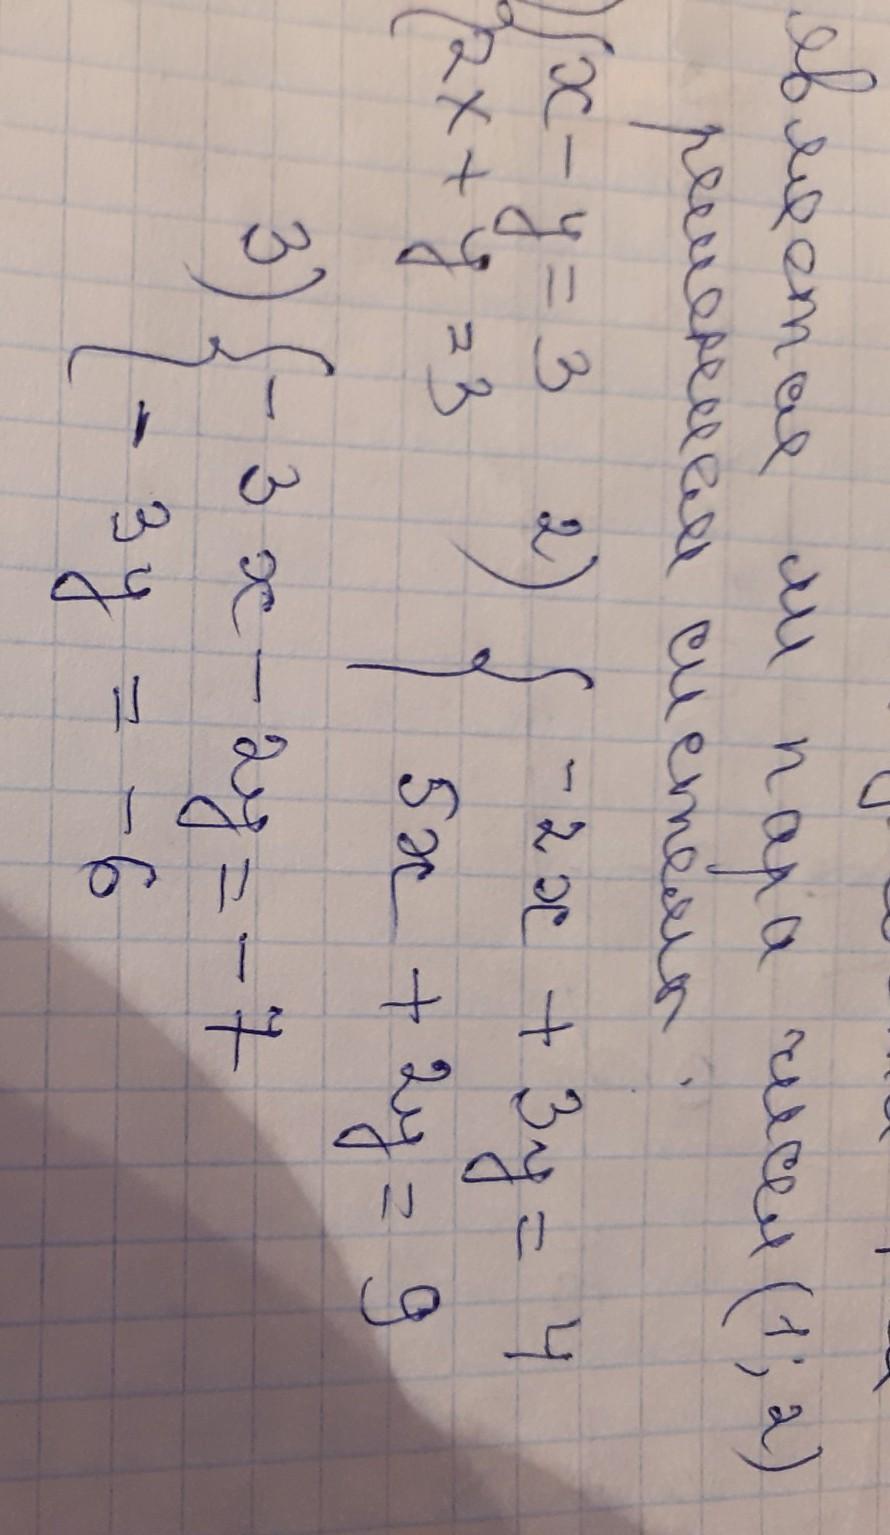 является ли пара чисел (1; 2)
решением системы:
1) { x - y = 3
2x + y = 3
2) { -2x + 3y = 4
5x + 2y = 9
3) { -3x - 2y = -7
-3y = -6